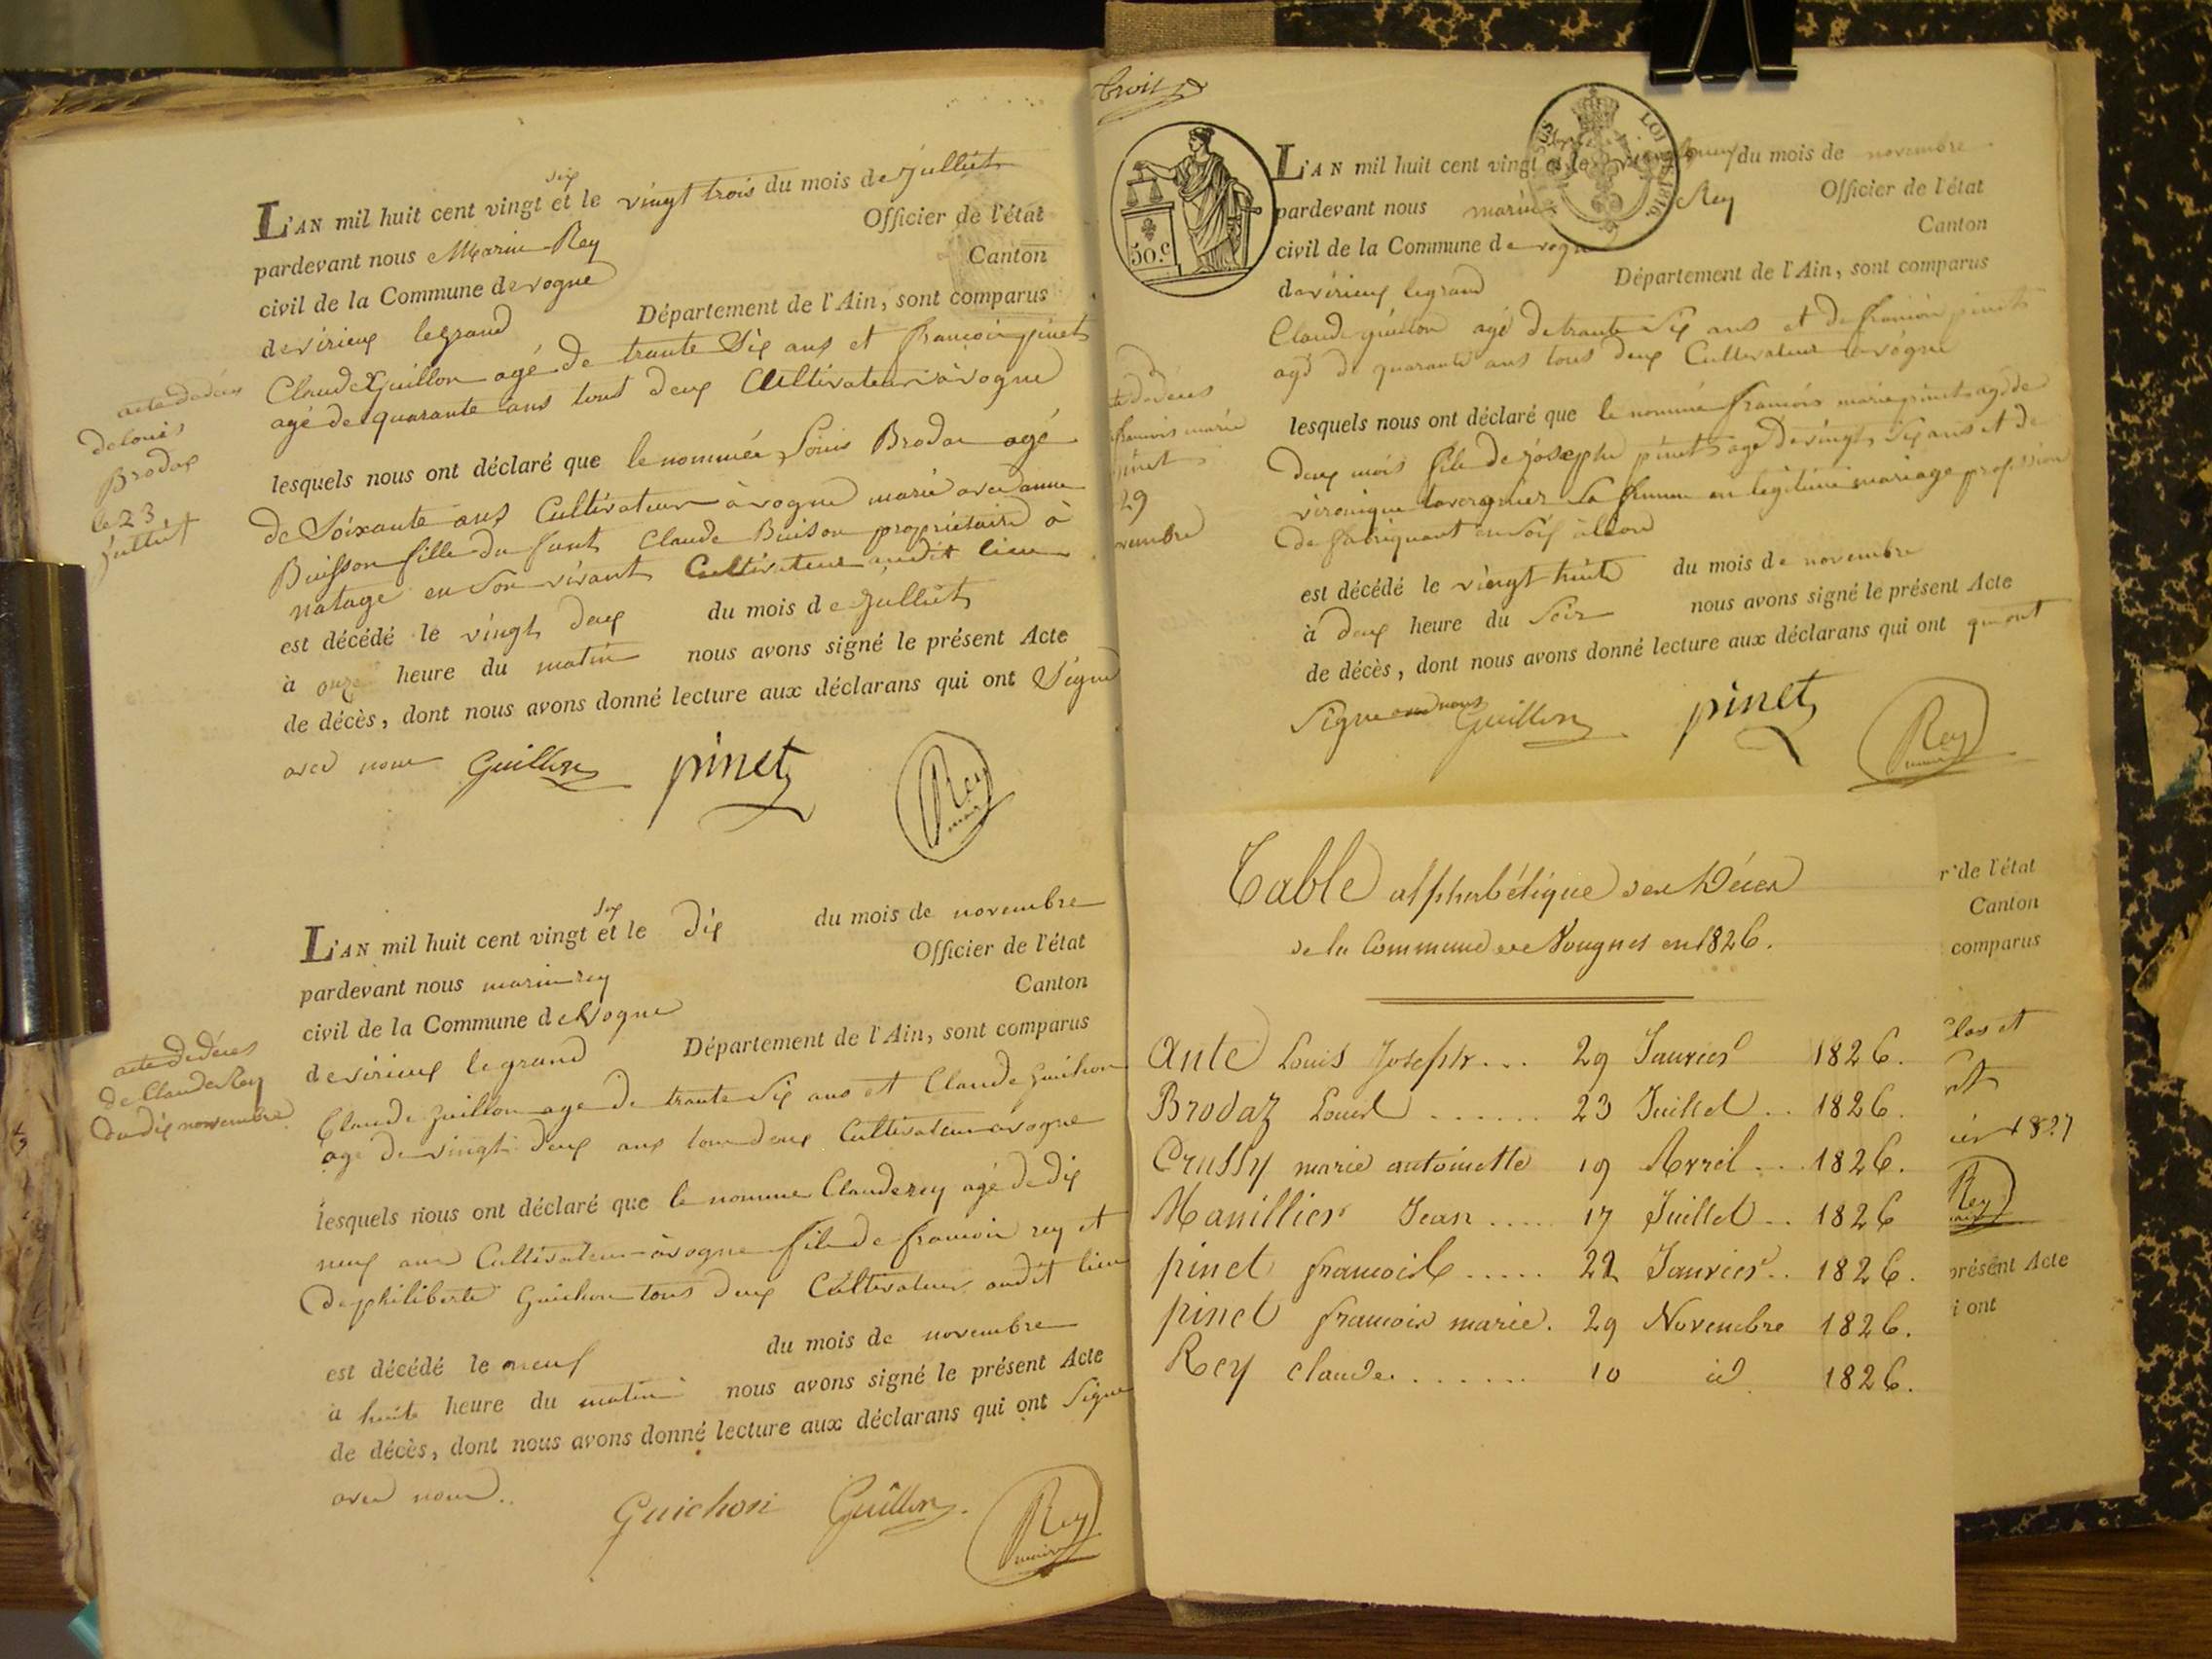 six
L'AN mil huit cent vingt et le vingt trois du mois de julliet
pardevant nous Marin Rey Officier de l'état
civil de la Commune de vogne Canton
de virieux legrand Département de l'Ain, sont comparus
Claude Guillon agé de trante Six ans et francoir pinet
agé de quarante ans tout deux Cultivateur à vogne
lesquels nous ont déclaré que le nommée Louis Brodaz agé
de Soixante ans Cultivateur à vogne marié avec anne
Buisson fille du funt Claude Buison propriétaire à
natage en Son vivant Cultivateur audit lieu
est décédé le vingt deux du mois de Julliet
à onze heure du matin nous avons signé le présent Acte
de décès, dont nous avons donné lecture aux déclarans qui ont Signé
avec nous Guillon pinet Rey
maire
acte de déces
de louis
Brodaz
le 23
julliet
six
L'AN mil huit cent vingt et le dix du mois de novembre
pardevant nous marin rey Officier de l'état
civil de la Commune de Vogne Canton
de virieux legrand Département de l'Ain, sont comparus
Claude Guillon age de trante Six ans et Claude Guichon
age de vingt deux ans tous deux Cultivateur a vogne
lesquels nous ont déclaré que le nomme Claude rey agé de dix
neuf ans Cultivateur à vogne fils de francoir rey et
de philiberte Guichon tous deux Cultivateur audit lieu
est décédé le neuf du mois de novembre
à huite heure du matin nous avons signé le présent Acte
de décès, dont nous avons donné lecture aux déclarans qui ont Signe
avec nous.
Guichon Guillon Rey
maire
acte de déces
de Claude Rey
du dix novembre
trois
50.c
LOI 1816.
L'AN mil huit cent vingt et le vingt neuf du mois de novembre
pardevant nous marin Rey Officier de l'état
civil de la Commune de vogne Canton
de virieux legrand Département de l'Ain, sont comparus
Claude guillon agé de trante Six ans et de francoir pinet
agé de quarante ans tous deux Cultivateur à vogne
lesquels nous ont déclaré que le nommé francois marie pinet agé de
deux mois fils de josephe pinet age de vingt Six ans et de
vironique lavergnier Sa femme en légitime mariage profession
de fabriquant en Soif à lion
est décédé le vingt huite du mois de novembre
à deux heure du Soir nous avons signé le présent Acte
de décès, dont nous avons donné lecture aux déclarans qui ont qui ont
Signe avec nous Guillon pinet Rey
maire
te de déces
francois marie
pinet
29
vembre
Table alphabétique des Décès
de la Commune de Vougnes en 1826.
Ante Louis Joseph... 29 Janvier 1826.
Brodaz Louis ...... 23 Juillet.. 1826.
Crussy marie antoinette 19 Avril... 1826.
Manillier Jean ..... 17 Juillet.. 1826
pinet francoise ..... 22 Janvier.. 1826.
pinet francois marie. 29 Novembre 1826.
Rey claude ....... 10 id 1826.
r de l'état
Canton
comparus
clos et
et
ier 1827
Rey
maire
présent Acte
i ont